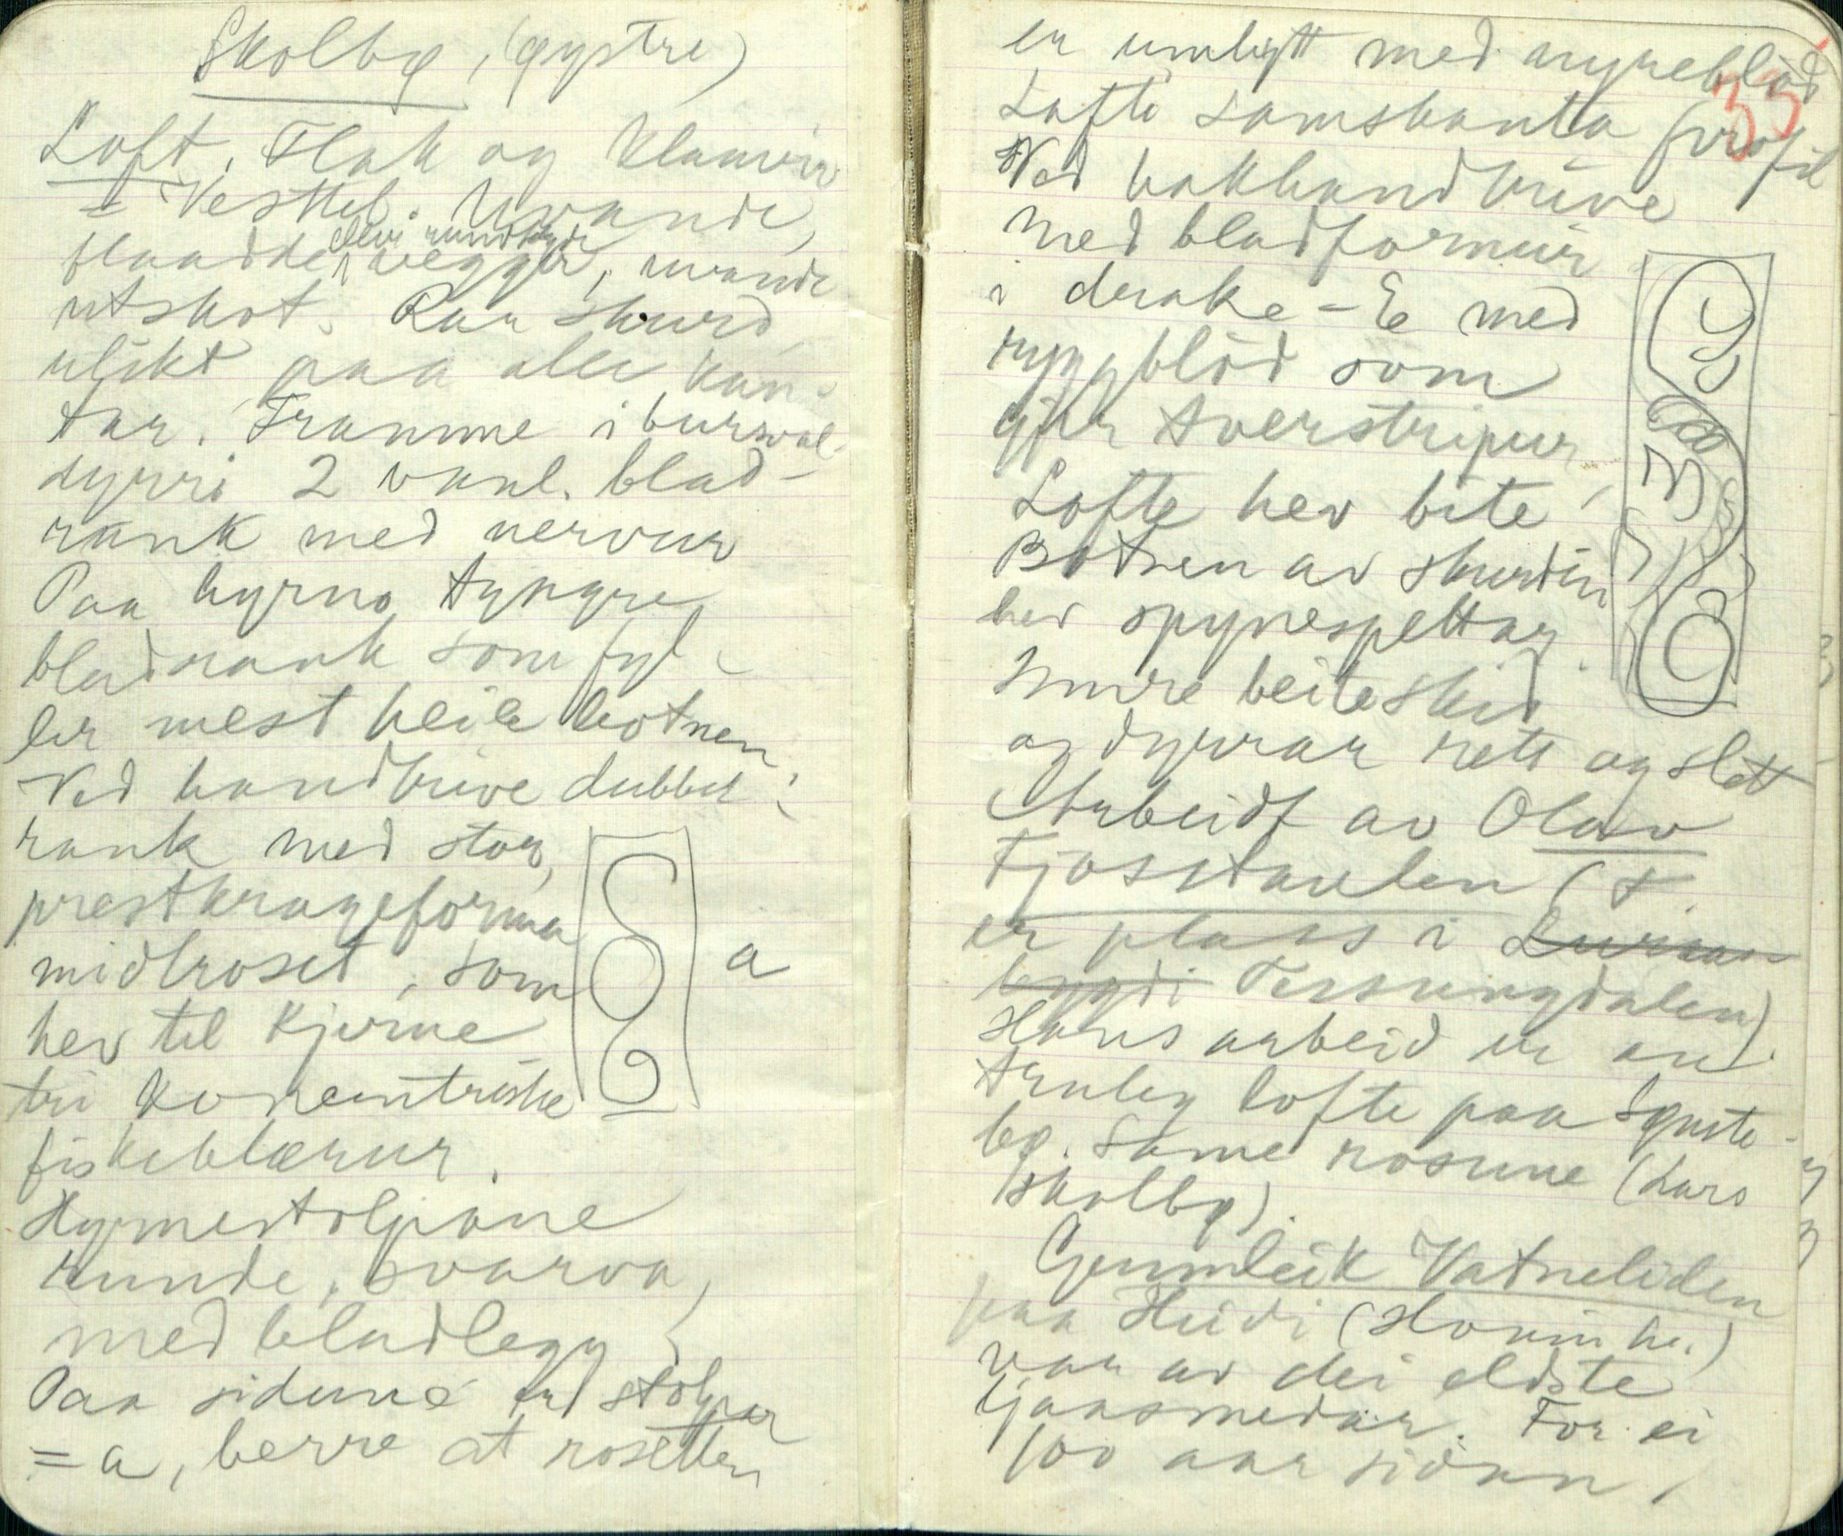 Skolbø, (øystre)
Loft. Flak og klamvir
= Vesttel. Uvande,
flaadde, vegger, uvande
utskot. Rar skurd
ulikt paa alle kan-
tar. Framme i bursval-
dyrri 2 vanl. blad-
rank med nervur
Paa hyrno tyngre
bladrank som fyl-
ler mest heile botnen.
Ved handtrive dubbel
rank med stor,
prestkrageforma
midtroset, som
hev til kjerne
tri konsentriske
fiskeblærur.
Hyrnestolpane
runde, svarva,
med bladlegg
Paa sidune er stolpar
= a, berre at rosetten
a
er umlagt med nyreblød
33
Lofte samskanta profil
Ved bakhandtrive
med bladformur
i drake - E med
ryggblöd som
gjer tverstripur
Lofte hev bite
Botnen av skurdin
hev spynespettar
Inure beiteskid
og dyrrar rett og slett
Arbeidt av Olav
Fjosstaulen (F
er plass i
bygdi Tessungdalen)
Hans arbeid er an
truleg lofte paa Synste-
bø. Same rosune (Lars
Skolbø).
Gunnleik Vatneliden
paa Heidi (Hovin he.)
var av dei eldste
tjaasmedar. For ei
100 aar sidan,